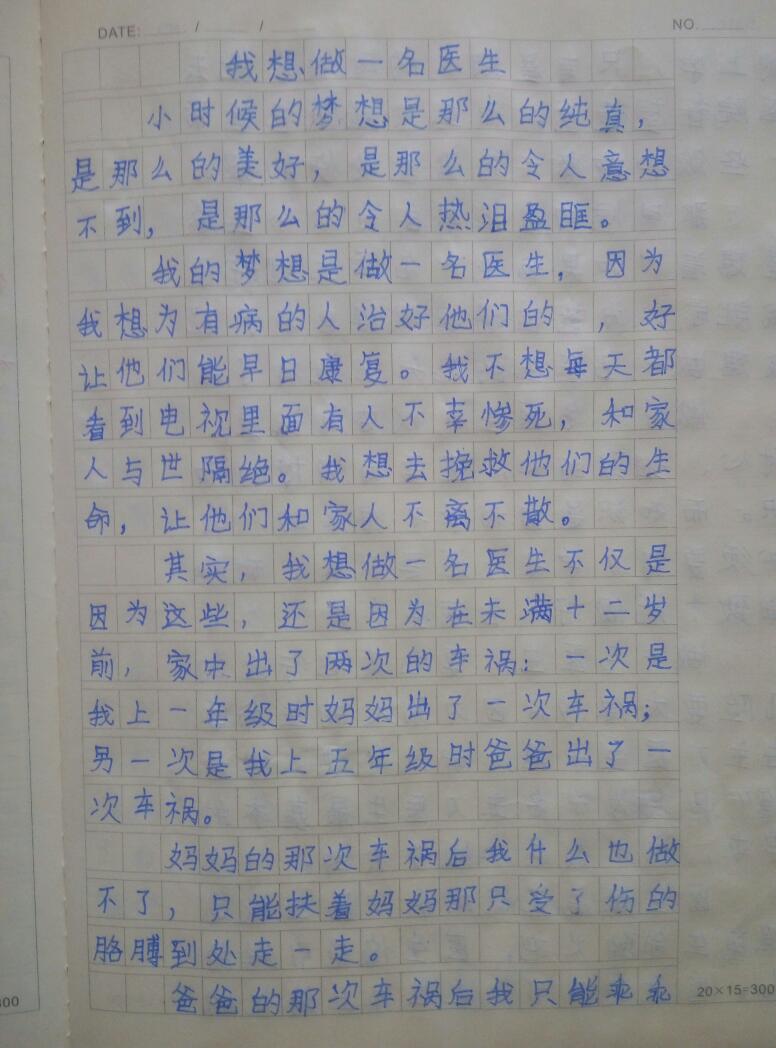 DATE: / /
NO.
我想做一名医生
小时候的梦想是那么的纯真，
是那么的美好，是那么的令人意想
不到，是那么的令人热泪盈眶。
我的梦想是做一名医生，因为
我想为有病的人治好他们的 ，好
让他们能早日康复。我不想每天都
看到电视里面有人不幸惨死，和家
人与世隔绝。我想去挽救他们的生
命，让他们和家人不离不散。
其实，我想做一名医生不仅是
因为这些，还是因为在未满十二岁
前，家中出了两次的车祸：一次是
我上一年级时妈妈出了一次车祸；
另一次是我上五年级时爸爸出了一
次车祸。
妈妈的那次车祸后我什么也做
不了，只能扶着妈妈那只受了伤的
胳膊到处走一走。
爸爸的那次车祸后我只能乖乖
300
20×15=300